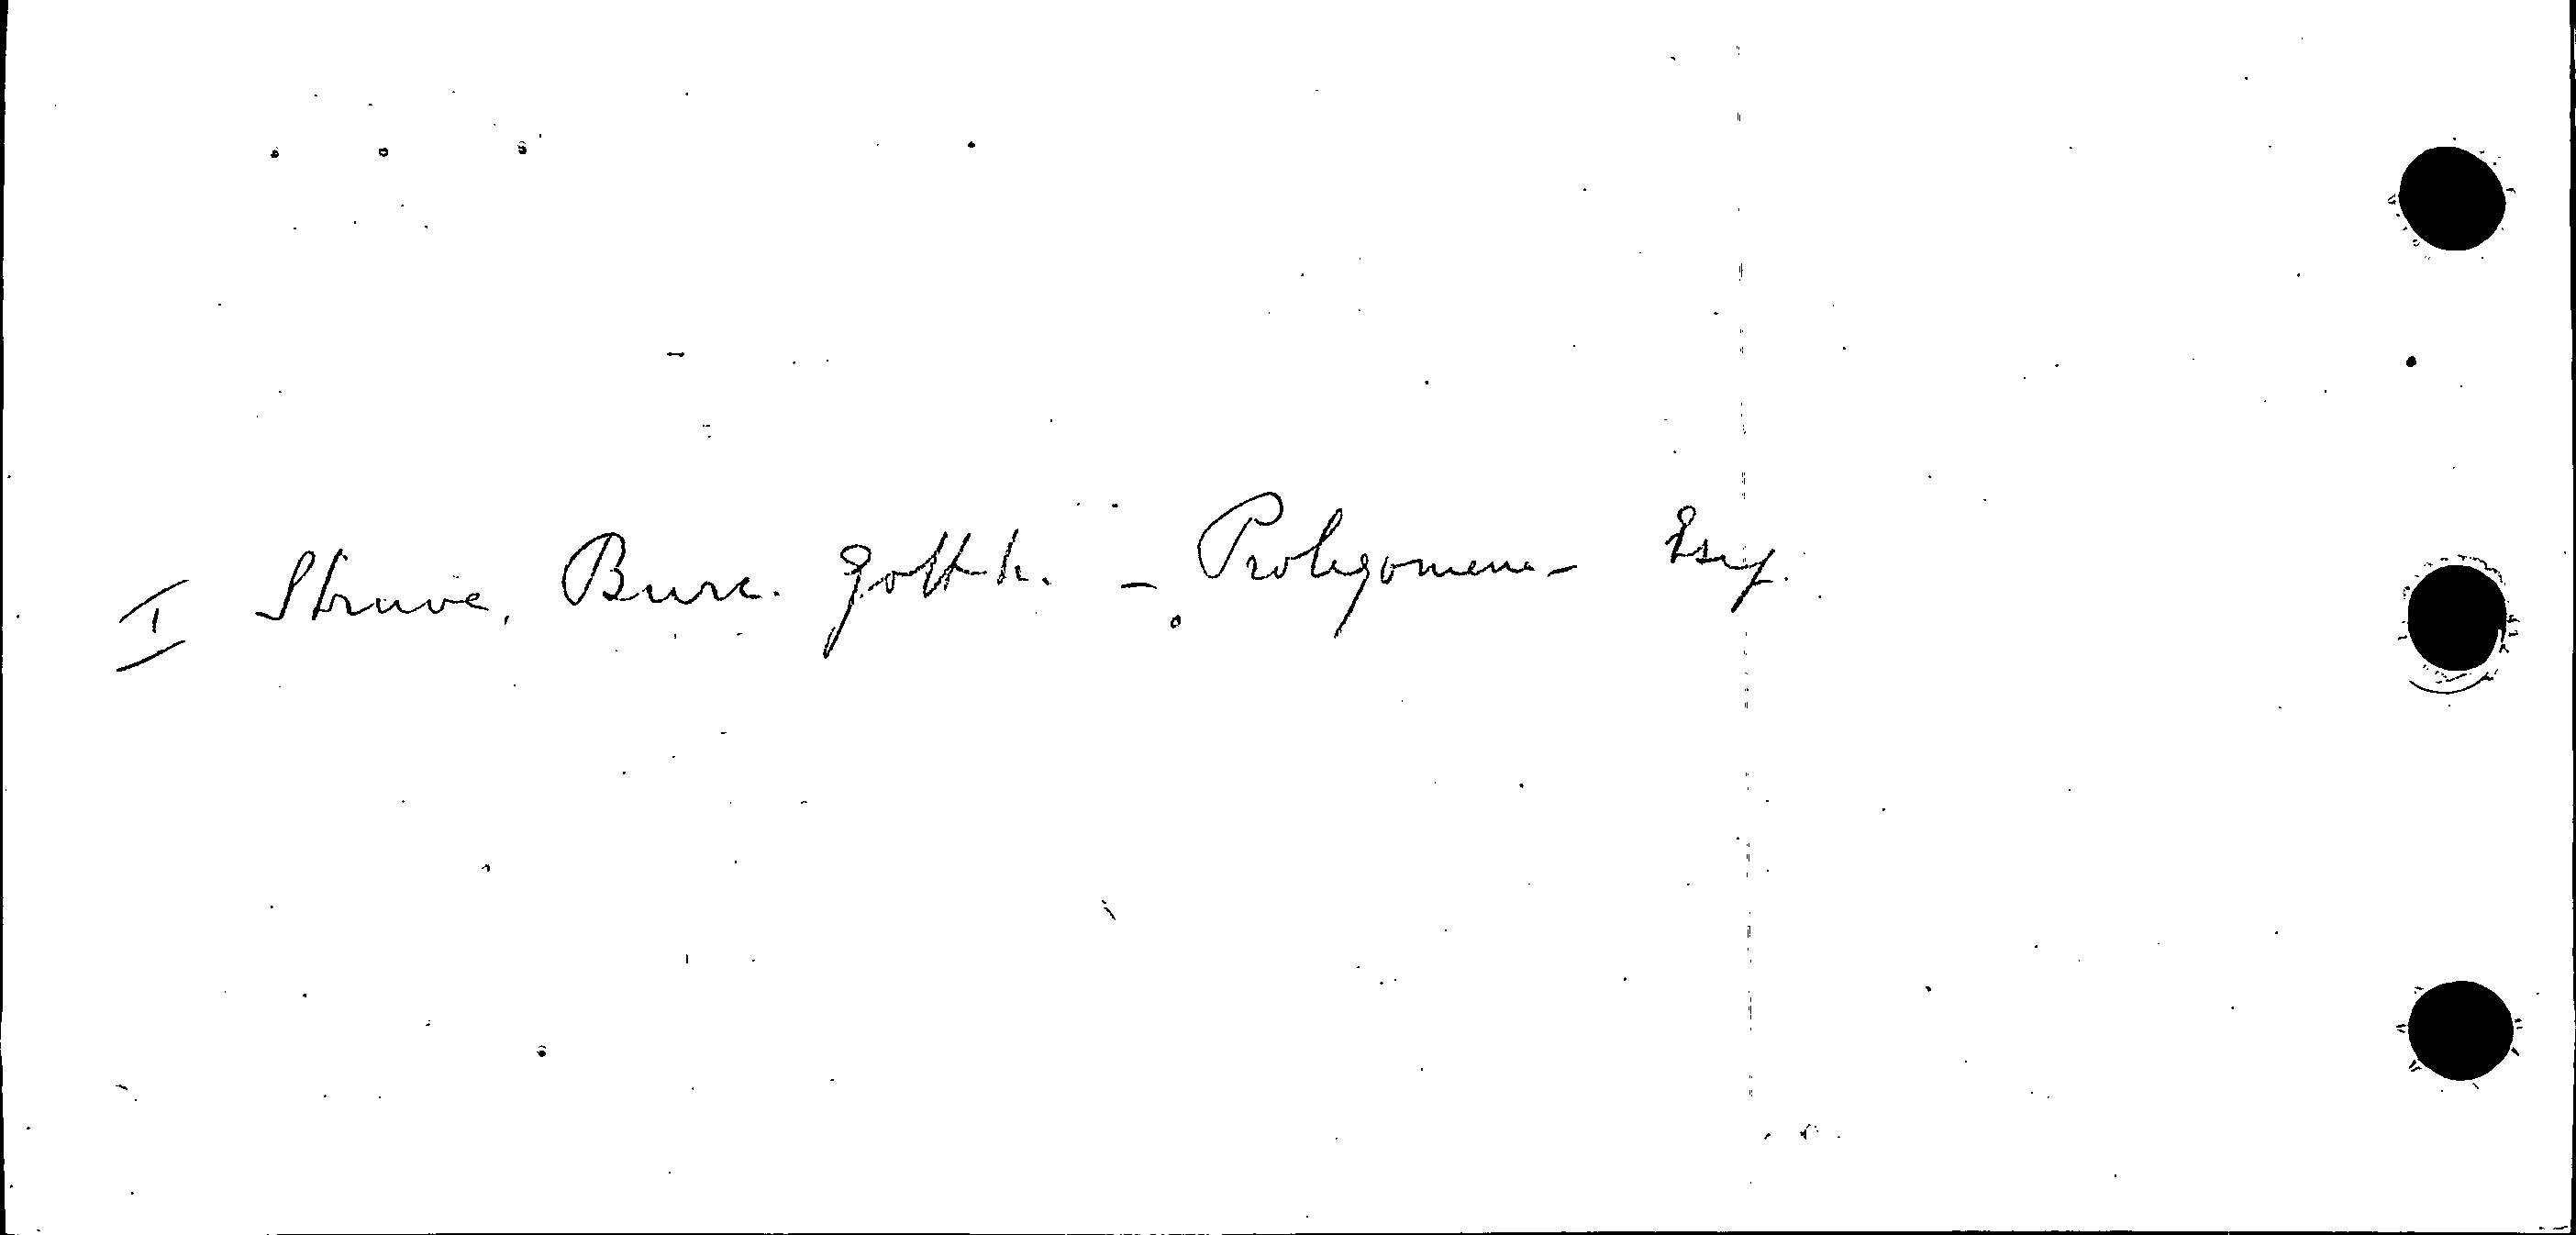 I Struve, Burc. Gotth. - Prolegomena -